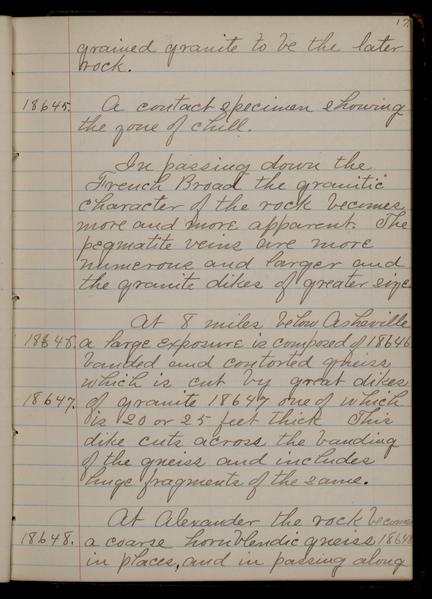 17
grained granite to be the later
rock.
18645. A contact specimen showing
the zone of chill.
In passing down the
French Broad the granitic
character of the rock becomes
more and more apparent. The
pegmatite veins are more
numerous and larger and
the granite dikes of greater size.
At 8 miles below Asheville
18646. a large exposure is composed of 18646
banded and contorted gneiss
which is cut by great dikes
18647. of granite 18647 one of which
is 20 or 25 feet thick This
dike cuts across the banding
of the gneiss and includes
huge fragments of the same.
At Alexander the rock becomes
18648. a coarse hornblendic gneiss 18648
in places, and in passing along